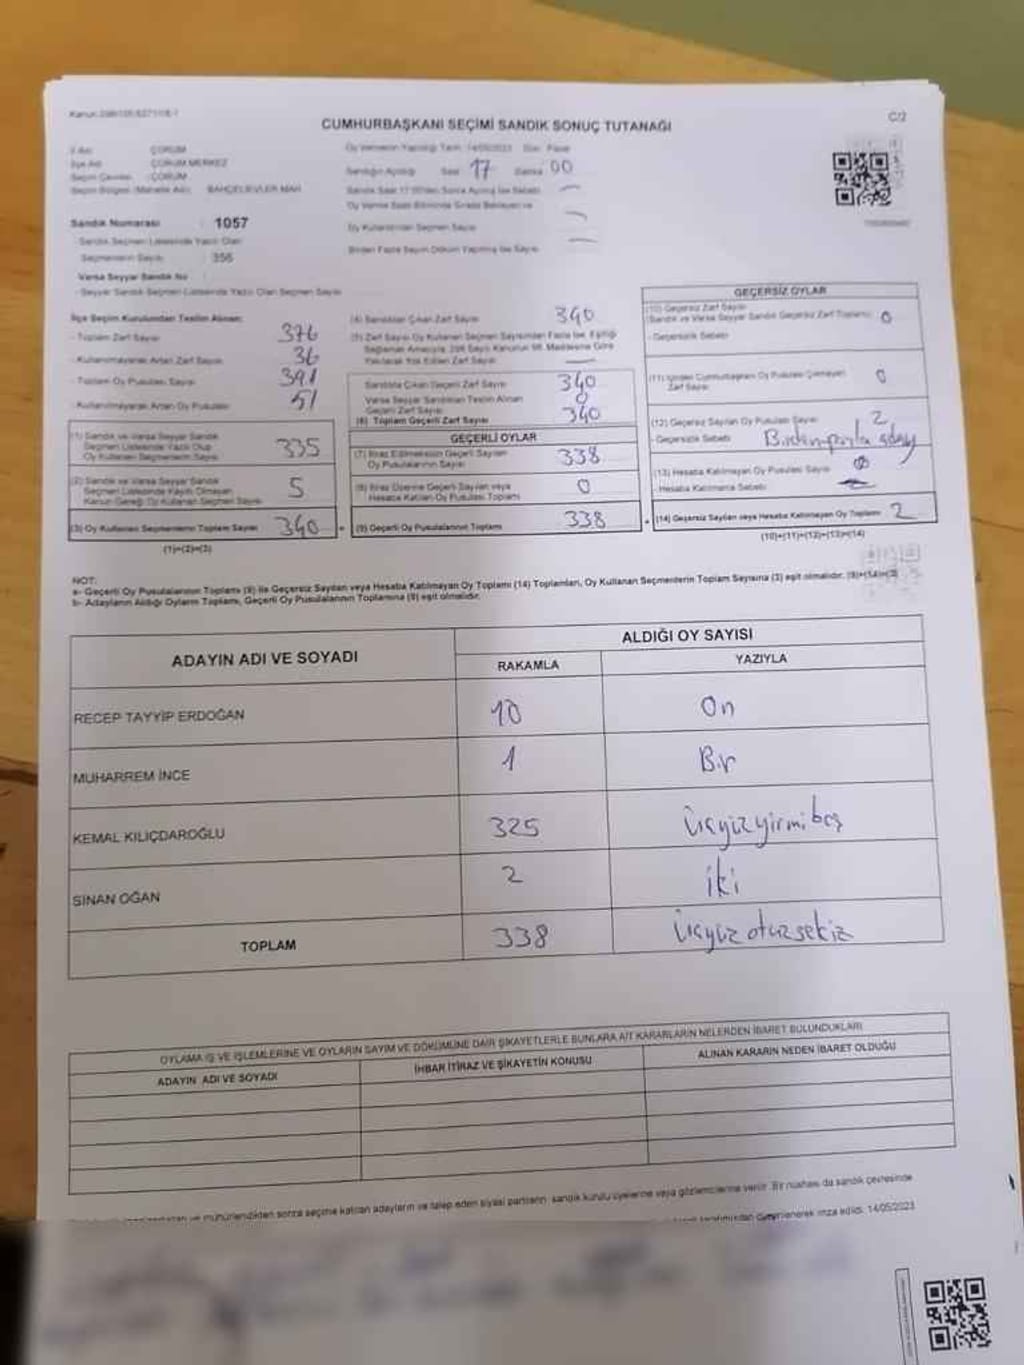 C/2
CUMHURBAŞKANI SEÇİMİ SANDIK SONUÇ TUTANAĞI
İl Adı : ÇORUM
İlçe Adı : ÇORUM MERKEZ
Seçim Çevresi : ÇORUM
Seçim Bölgesi (Mahalle Adı) : BAHÇELİEVLER MAH.
Sandık Numarası : 1057
- Sandık Seçmen Listesinde Yazılı Olan
Seçmenlerin Sayısı : 356
Varsa Seyyar Sandık No :
- Seyyar Sandık Seçmen Listesinde Yazılı Olan Seçmen Sayısı
Oy Vermenin Yapıldığı Tarih: 14/05/2023 Gün: Pazar
Sandığın Açıldığı Saat 17 Dakika 00
Sandık Saat 17.00'den Sonra Açılmış İse Sebebi —
Oy Verme Saati Bitiminde Sırada Bekleyen ve
Oy Kullandırılan Seçmen Sayısı —
Birden Fazla Sayım Döküm Yapılmış İse Sayısı —
İlçe Seçim Kurulundan Teslim Alınan:
- Toplam Zarf Sayısı 376
- Kullanılmayarak Artan Zarf Sayısı 36
- Toplam Oy Pusulası Sayısı 391
- Kullanılmayarak Artan Oy Pusulası 51
(1) Sandık ve Varsa Seyyar Sandık
Seçmen Listesinde Yazılı Olup
Oy Kullanan Seçmenlerin Sayısı 335
(2) Sandık ve Varsa Seyyar Sandık
Seçmen Listesinde Kayıtlı Olmayan
Kanun Gereği Oy Kullanan Seçmen Sayısı 5
(3) Oy Kullanan Seçmenlerin Toplam Sayısı 340
(1)+(2)=(3)
(4) Sandıktan Çıkan Zarf Sayısı 340
(5) Zarf Sayısı Oy Kullanan Seçmen Sayısından Fazla İse, Eşitliği
Sağlamak Amacıyla, 298 Sayılı Kanunun 98. Maddesine Göre
Yakılarak Yok Edilen Zarf Sayısı —
Sandıkta Çıkan Geçerli Zarf Sayısı 340
Varsa Seyyar Sandıktan Teslim Alınan
Geçerli Zarf Sayısı 0
(6) Toplam Geçerli Zarf Sayısı 340
GEÇERLİ OYLAR
(7) İtiraz Edilmeksizin Geçerli Sayılan
Oy Pusulalarının Sayısı 338
(8) İtiraz Üzerine Geçerli Sayılan veya
Hesaba Katılan Oy Pusulası Toplamı 0
(9) Geçerli Oy Pusulalarının Toplamı 338
GEÇERSİZ OYLAR
(10) Geçersiz Zarf Sayısı
(Sandık ve Varsa Seyyar Sandık Geçersiz Zarf Toplamı) 0
- Geçersizlik Sebebi
(11) İçinden Cumhurbaşkanı Oy Pusulası Çıkmayan
Zarf Sayısı 0
(12) Geçersiz Sayılan Oy Pusulası Sayısı 2
- Geçersizlik Sebebi Birden fazla aday
(13) Hesaba Katılmayan Oy Pusulası Sayısı 0
- Hesaba Katılmama Sebebi
(14) Geçersiz Sayılan veya Hesaba Katılmayan Oy Toplamı 2
(10)+(11)+(12)+(13)=(14)
NOT:
a- Geçerli Oy Pusulalarının Toplamı (9) ile Geçersiz Sayılan veya Hesaba Katılmayan Oy Toplamı (14) Toplamları, Oy Kullanan Seçmenlerin Toplam Sayısına (3) eşit olmalıdır. (9)+(14)=(3)
b- Adayların Aldığı Oyların Toplamı, Geçerli Oy Pusulalarının Toplamına (9) eşit olmalıdır.
ADAYIN ADI VE SOYADI ALDIĞI OY SAYISI
RAKAMLA YAZIYLA
RECEP TAYYİP ERDOĞAN 10 On
MUHARREM İNCE 1 Bir
KEMAL KILIÇDAROĞLU 325 üçyüzyirmibeş
SİNAN OĞAN 2 iki
TOPLAM 338 üçyüzotuzsekiz
OYLAMA İŞ VE İŞLEMLERİNE VE OYLARIN SAYIM VE DÖKÜMÜNE DAİR ŞİKAYETLERLE BUNLARA AİT KARARLARIN NELERDEN İBARET BULUNDUKLARI
ADAYIN ADI VE SOYADI İHBAR İTİRAZ VE ŞİKAYETİN KONUSU ALINAN KARARIN NEDEN İBARET OLDUĞU
ve mühürlendikten sonra seçime katılan adayların ve talep eden siyasi partilerin sandık kurulu üyelerine veya gözlemcilerine verilir. Bir nüshası da sandık çevresinde
imza edildi. 14/05/2023